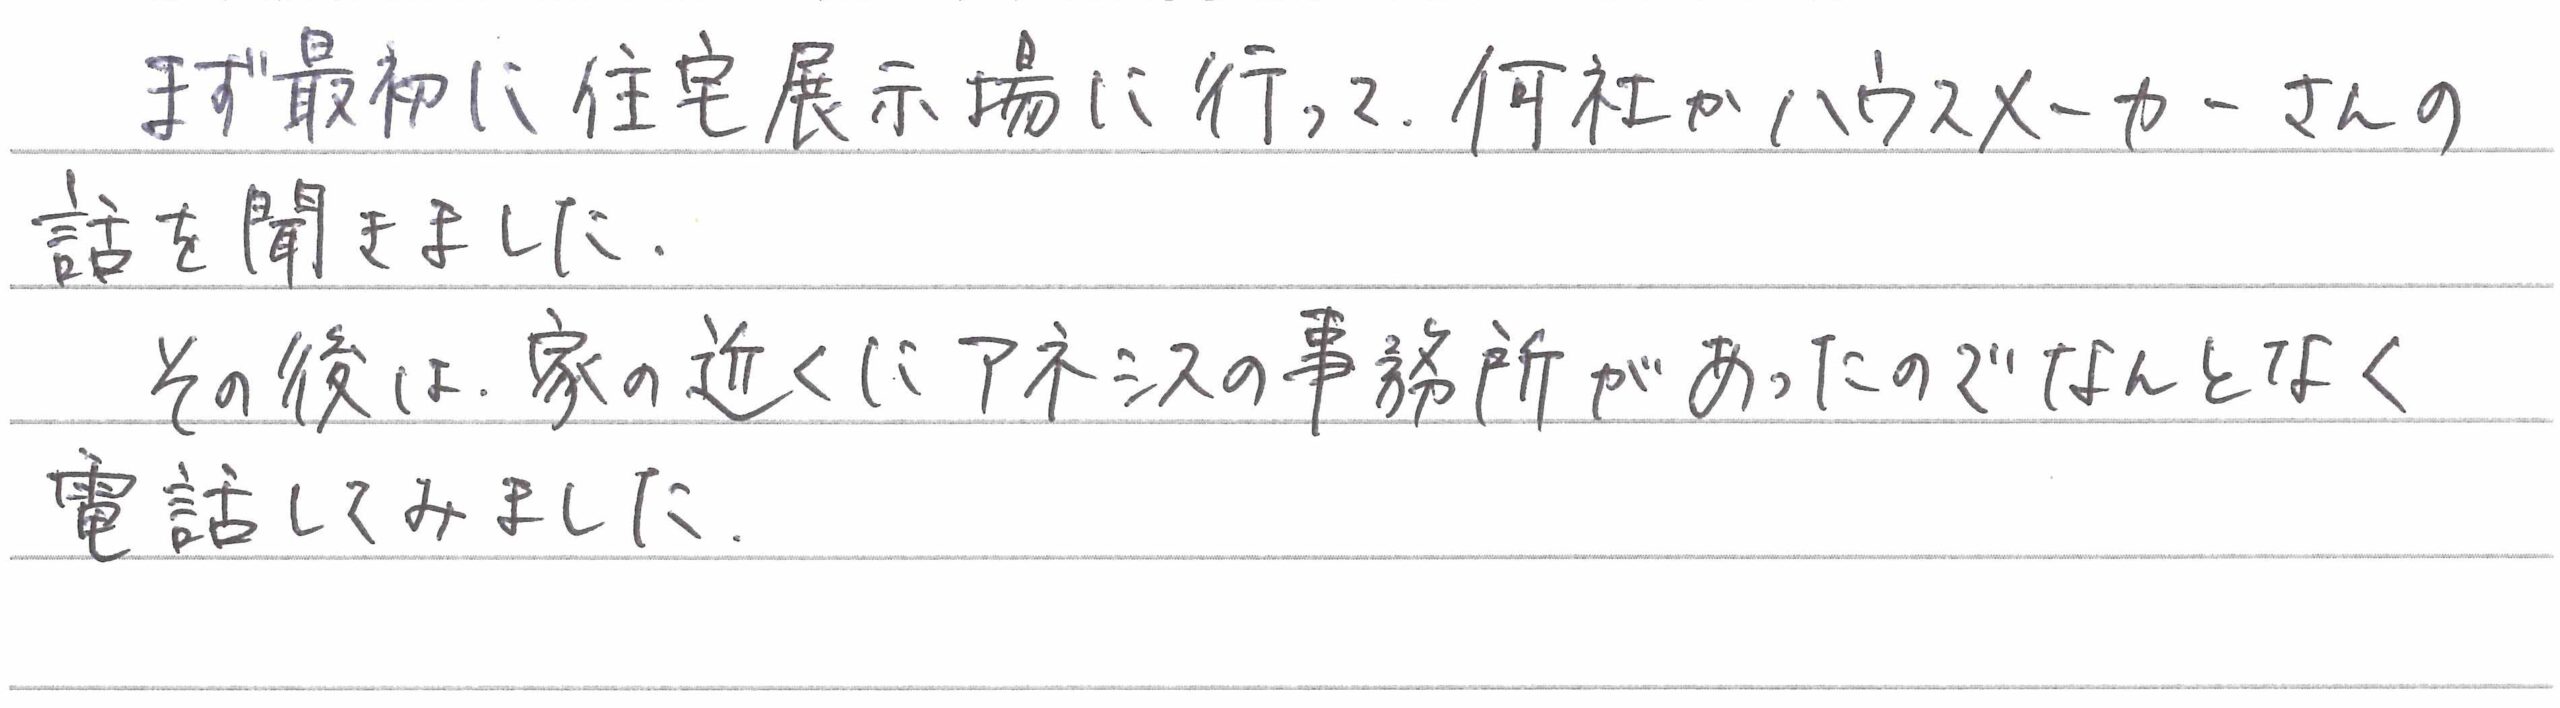 まず最初に住宅展示場に行って.何社かハウスメーカーさんの
話を聞きました.
その後は.家の近くにアネシスの事務所があったのでなんとなく
電話してみました.